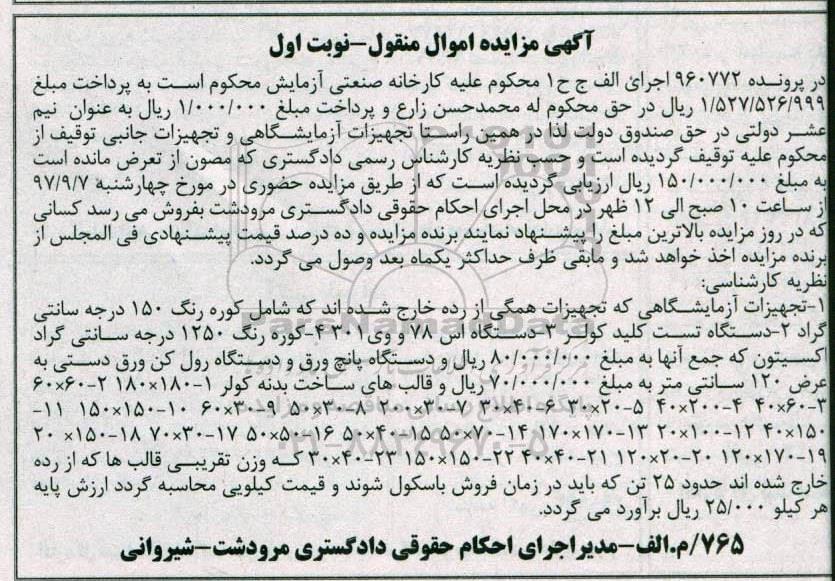 آگهی مزایده اموال منقول-نوبت اول
در پرونده ۹۶۰۷۷۲ اجرای الف ج ح۱ محکوم علیه کارخانه صنعتی آزمایش محکوم است به پرداخت مبلغ
۱/۵۲۷/۵۲۶/۹۹۹ ریال در حق محکوم له محمدحسن زارع و پرداخت مبلغ ۱/۰۰۰/۰۰۰ ریال به عنوان نیم
عشر دولتی در حق صندوق دولت لذا در همین راستا تجهیزات آزمایشگاهی و تجهیزات جانبی توقیف از
محکوم علیه توقیف گردیده است و حسب نظریه کارشناس رسمی دادگستری که مصون از تعرض مانده است
به مبلغ ۱۵۰/۰۰۰/۰۰۰ ریال ارزیابی گردیده است که از طریق مزایده حضوری در مورخ چهارشنبه ۹۷/۹/۷
از ساعت ۱۰ صبح الی ۱۲ ظهر در محل اجرای احکام حقوقی دادگستری مرودشت بفروش می رسد کسانی
که در روز مزایده بالاترین مبلغ را پیشنهاد نمایند برنده مزایده و ده درصد قیمت پیشنهادی فی المجلس از
برنده مزایده اخذ خواهد شد و مابقی ظرف حداکثر یکماه بعد وصول می گردد.
نظریه کارشناسی:
۱-تجهیزات آزمایشگاهی که تجهیزات همگی از رده خارج شده اند که شامل کوره رنگ ۱۵۰ درجه سانتی
گراد ۲-دستگاه تست کلید کولر ۳-دستگاه اس ۷۸ و وی۳۰۱ ۴-کوره رنگ ۱۲۵۰ درجه سانتی گراد
اکسیتون که جمع آنها به مبلغ ۸۰/۰۰۰/۰۰۰ ریال و دستگاه پانچ ورق و دستگاه رول کن ورق دستی به
عرض ۱۲۰ سانتی متر به مبلغ ۷۰/۰۰۰/۰۰۰ ریال و قالب های ساخت بدنه کولر ۱-۱۸۰×۱۸۰ ۲-۶۰×۶۰
۳-۶۰×۴۰ ۴-۲۰۰×۴۰ ۵-۲۰×۲۰ ۶-۴۰×۳۰ ۷-۲۰×۳۰ ۸-۳۰×۳۰ ۹-۳۰×۶۰ ۱۰-۱۵۰×۱۵۰ ۱۱-
۱۵۰×۴۰ ۱۲-۱۰۰×۲۰ ۱۳-۱۷۰×۱۷۰ ۱۴-۷۰×۵۰ ۱۵-۴۰×۵۰ ۱۶-۵۰×۵۰ ۱۷-۳۰×۷۰ ۱۸-۱۵۰×۲۰
۱۹-۱۷۰×۱۲۰ ۲۰-۲۰×۱۲۰ ۲۱-۴۰×۴۰ ۲۲-۱۵۰×۱۵۰ ۲۳-۴۰×۳۰ که وزن تقریبی قالب ها که از رده
خارج شده اند حدود ۲۵ تن که باید در زمان فروش باسکول شوند و قیمت کیلویی محاسبه گردد ارزش پایه
هر کیلو ۲۵/۰۰۰ ریال برآورد می گردد.
۷۶۵/م.الف-مدیر اجرای احکام حقوقی دادگستری مرودشت-شیروانی
ParsNamadData
۰۲۱-۸۸۳۴۹۶۷۰-۵